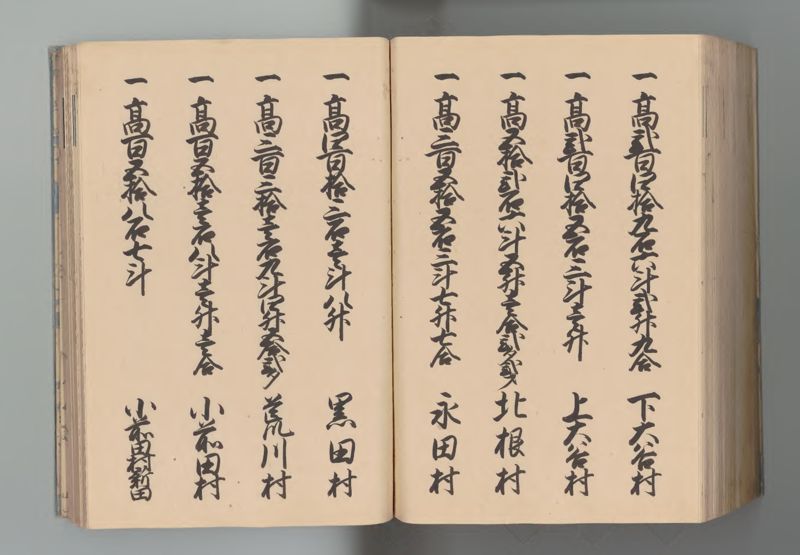 一 高弐百四拾九石六斗弐升九合 下大谷村
一 高弐百四拾五石三斗壱升 上大谷村
一 高五拾弐石六斗五升壱合弐勺 北根村
一 高三百五拾五石三斗七升七合 永田村
一 高四百拾三石壱斗八升 黒田村
一 高三百三拾壱石九斗四升五合弐勺 荒川村
一 高百五拾壱石八斗壱升壱合 小前田村
一 高百五拾八石七斗 小前田村新田